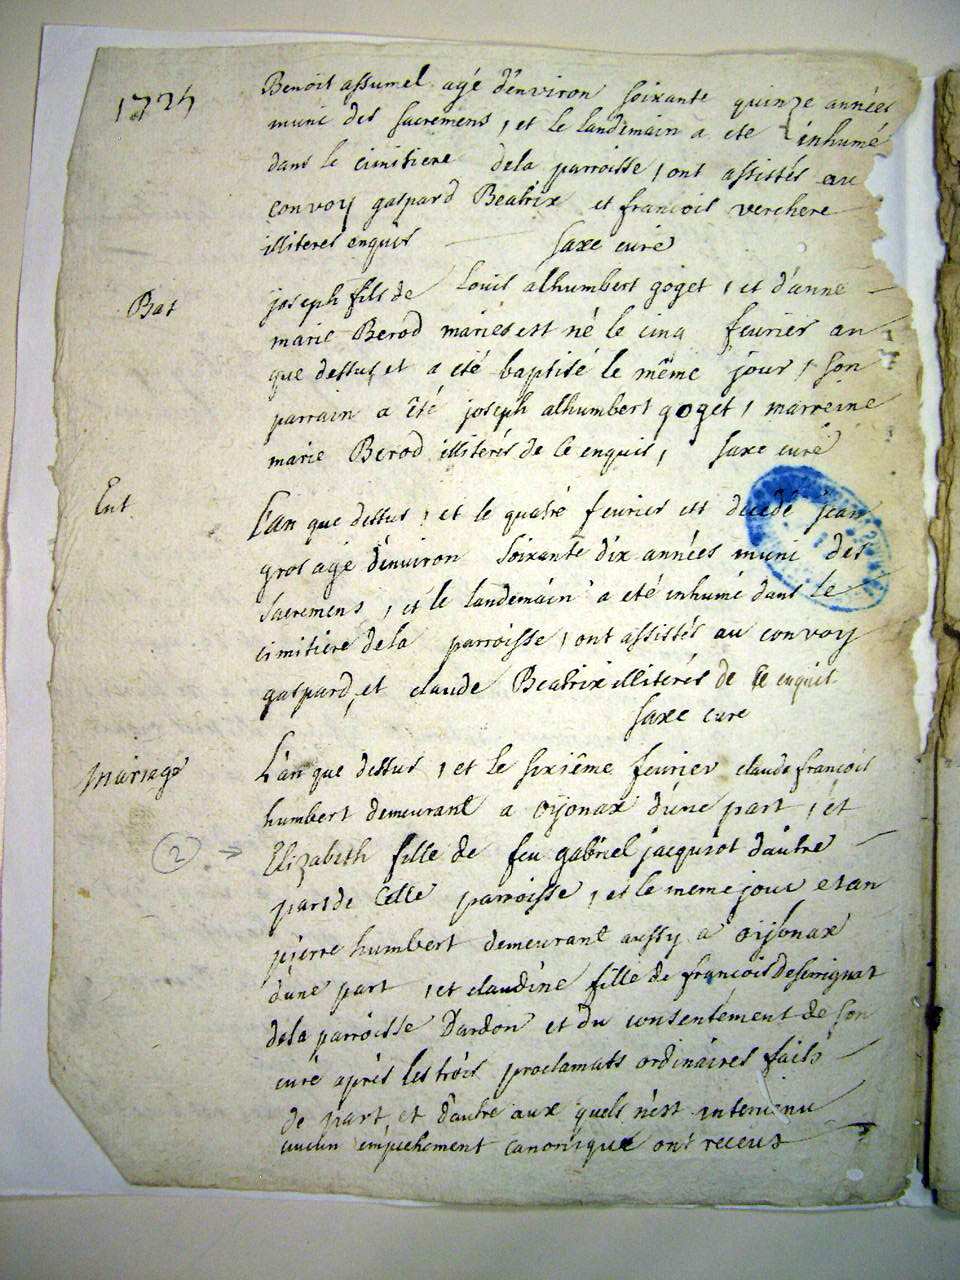 1725
Benoit assumel agé d'environ soixante quinze années
muni des sacremens, et le landemain a ete inhumé
dans le cimitiere dela parroisse, ont assistés au
convoy gaspard Beatrix et francois verchere
illiteres enquis saxe curé
Bat
joseph fils de Louis alhumbert goget, et d'anne
marie Berod mariés est né le cinq fevrier an
que dessus et a été baptisé le même jour, son
parrain a été joseph alhumbert goget, marreine
marie Berod illiterés de ce enquis, saxe curé
Ent
L'an que dessus, et le quatre fevrier est decedé jean
gros agé d'environ soixante dix années muni des
sacremens, et le landemain a eté inhumé dans le
cimitiere dela parroisse, ont assistés au convoy
gaspard, et claude Beatrix illiterés de ce enquis
saxe cure
mariage
L'an que dessus, et le sixiême fevrier claude francois
humbert demeurant a oijonax d'une part, et
2 → Elizabeth fille de feu gabriel jacquiot d'autre
part de Celle parroisse, et le meme jour et an
pierre humbert demeurant aussy a oijonax
d'une part, et claudine fille de francois deserrignat
dela parroisse Dardon et du consentement de son
curé aprés les trois proclamats ordinaires faits
de part et d'autre aux quels n'est intervenu
aucun empechement canonique ont receus